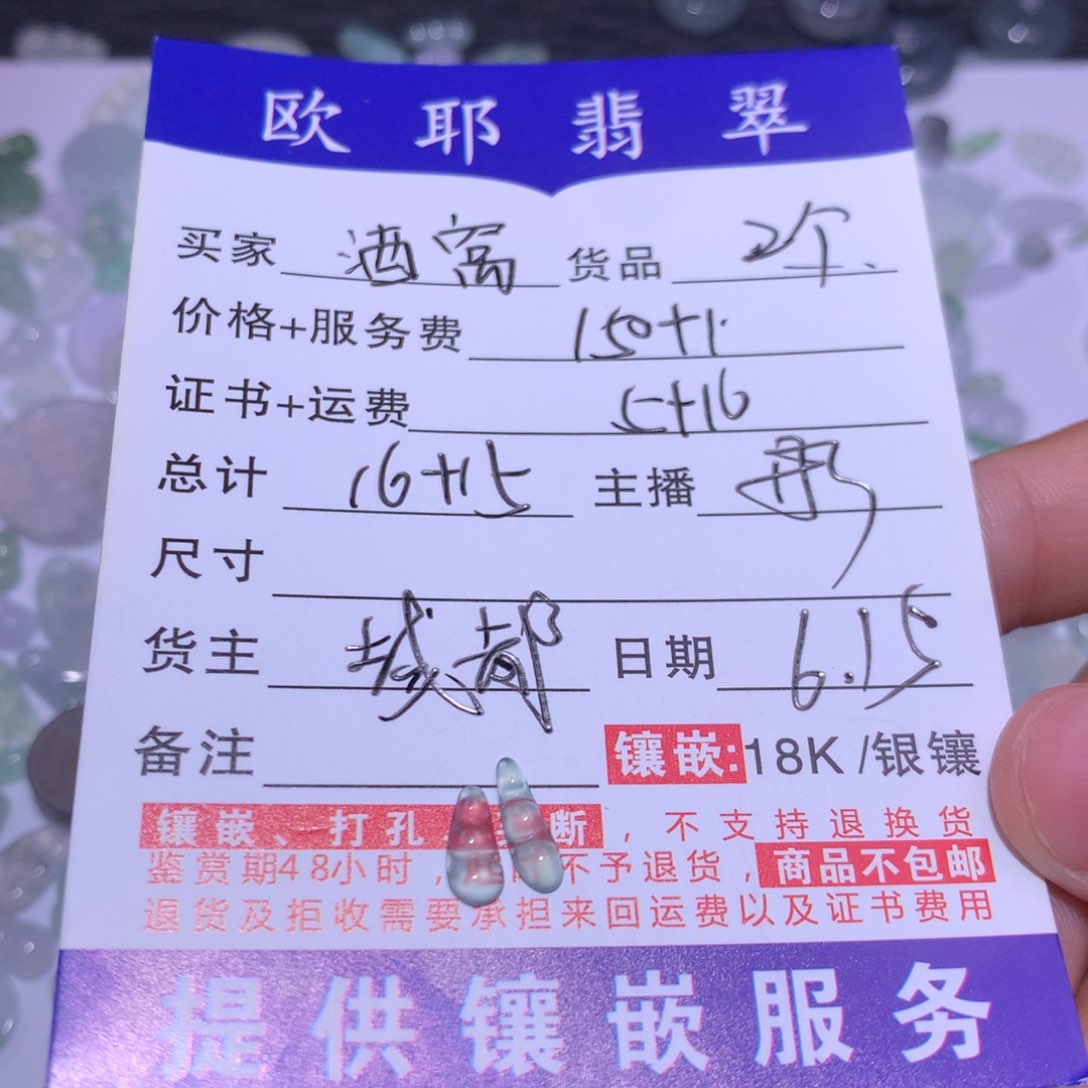 欧耶翡翠
买家 酒窝 货品 2个
价格+服务费 150+1
证书+运费 5+16
总计 16+15 主播
尺寸
货主 城都 日期 6.15
备注 镶嵌:18K/银镶
镶嵌、打孔、断，不支持退换货
鉴赏期48小时，不予退货，商品不包邮
退货及拒收需要承担来回运费以及证书费用
提供镶嵌服务